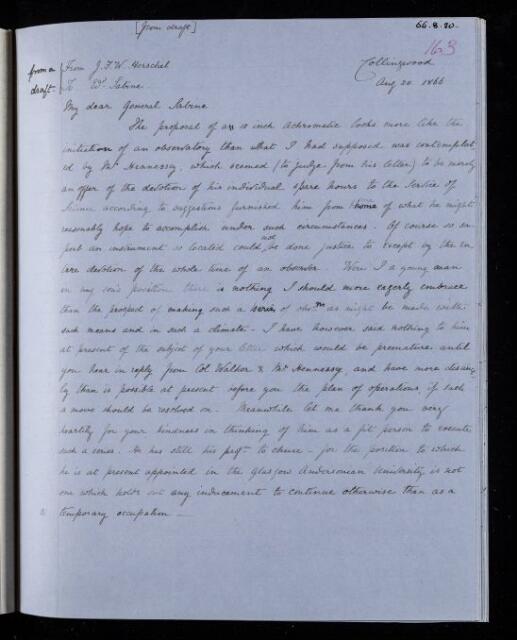 [from draft]
66.8.20.
163
from a draft
From J.F.W. Herschel
To Ed. Sabine
Collingwood
Aug 20 1866
My dear General Sabine
The proposal of a 10 inch Achromatic looks more like the
initiation of an observatory than what I had supposed was contemplat-
ed by Mr Hennessy, which seemed (to judge from his letter) to be merely
an offer of the devotion of his individual spare hours to the service of
Science according to suggestions furnished him from home of what he might
reasonably hope to accomplish under such circumstances. Of course so su-
perb an instrument so located could not be done justice to except by the en-
tire devotion of the whole time of an observer. Were I a young man
in my son's position there is nothing I should more eagerly embrace
than the prospect of making such a series of obsns as might be made with
such means and in such a climate. I have however said nothing to him
at present of the subject of your letter which would be premature until
you hear in reply from Col Walker & Mr Hennessy, and have more clear-
ly than is possible at present before you the plan of operations if such
a move should be resolved on. Meanwhile let me thank you very
heartily for your kindness in thinking of him as a fit person to execute
such a series. He has still his profn to chuse - for the position to which
he is at present appointed in the Glasgow Andersonian University is not
one which holds out any inducement to continue otherwise than as a
temporary occupation —